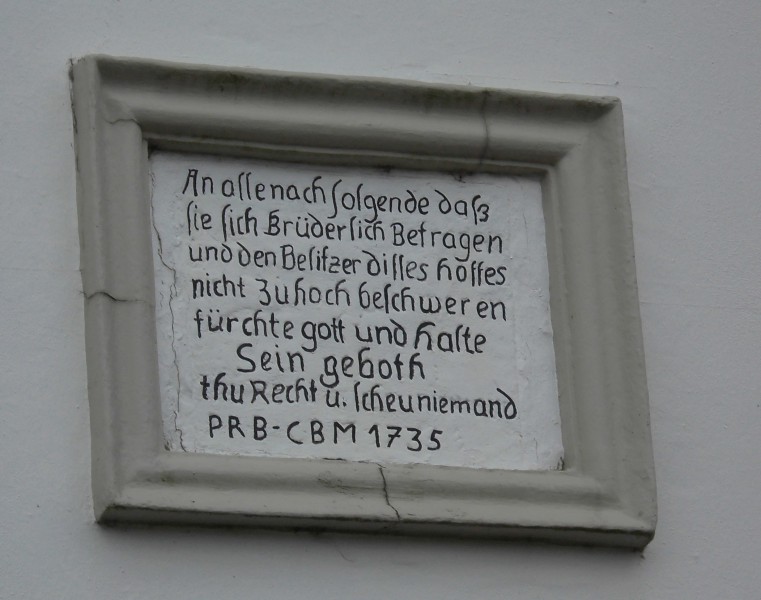 An alle nach folgende daß
sie sich Brüderlich Betragen
und den Besitzer disses hoffes
nicht Zu hoch beschweren
fürchte gott und halte
Sein geboth
thu Recht u. scheu niemand
PRB-CBM 1735